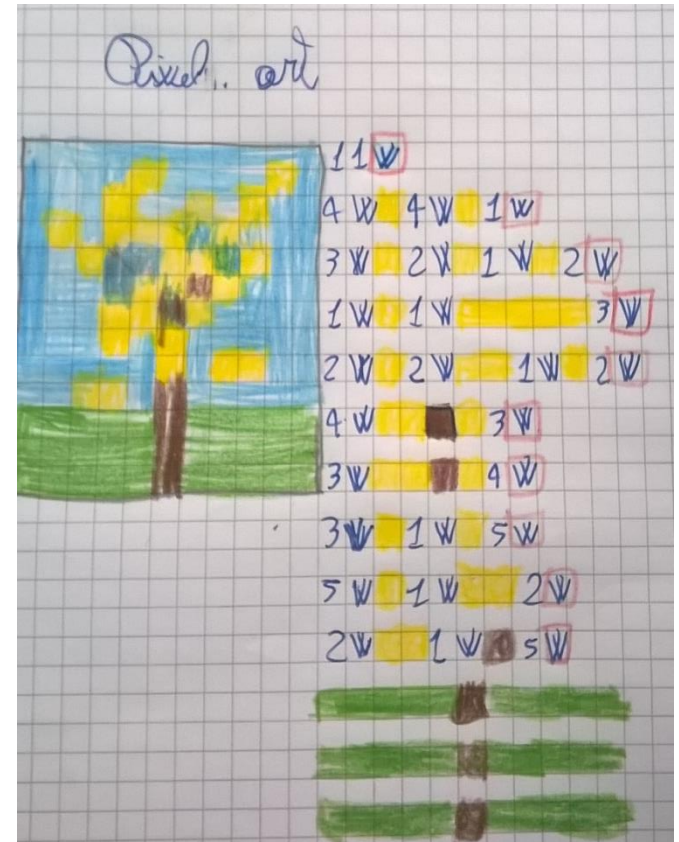 Pixel art
11 W
4 W 4 W 1 W
3 W 2 W 1 W 2 W
1 W 1 W 3 W
2 W 2 W 1 W 2 W
4 W 3 W
3 W 4 W
3 W 1 W 5 W
5 W 1 W 2 W
2 W 1 W 5 W